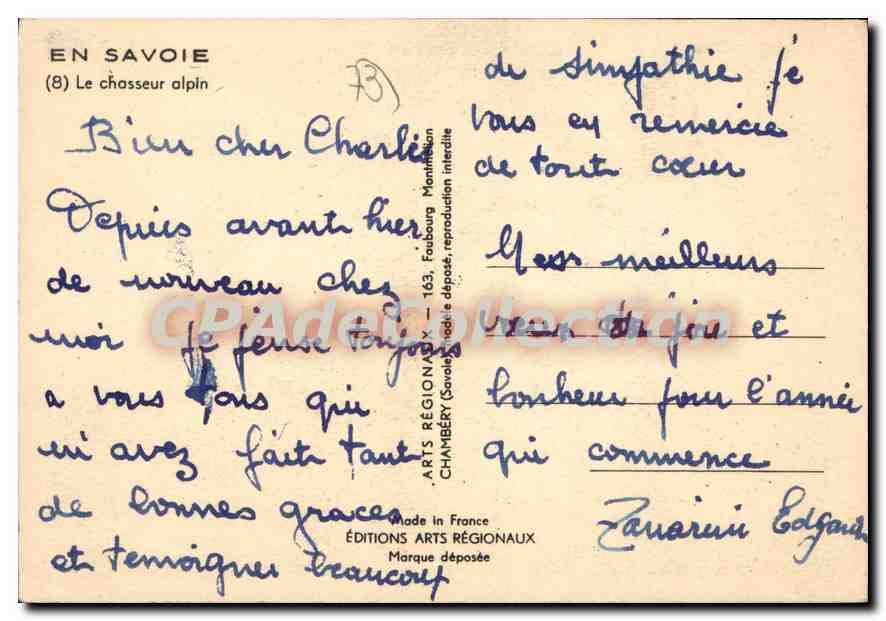 EN SAVOIE
(8) Le chasseur alpin
73
Bien cher Charles
Depuis avant hier
de nouveau chez
moi je pense toujours
a vous tous qui
m'avez fait tant
de bonnes graces
et temoigner beaucoup
de simpathie je
vous en remercie
de tout cœur
Mes meilleurs
vœux de joie et
bonheur pour l'année
qui commence
Edgard
ARTS RÉGIONAUX — 163, Faubourg Montmélian
CHAMBÉRY (Savoie) modèle déposé, reproduction interdite
Made in France
ÉDITIONS ARTS RÉGIONAUX
Marque déposée
CPAdeCollection